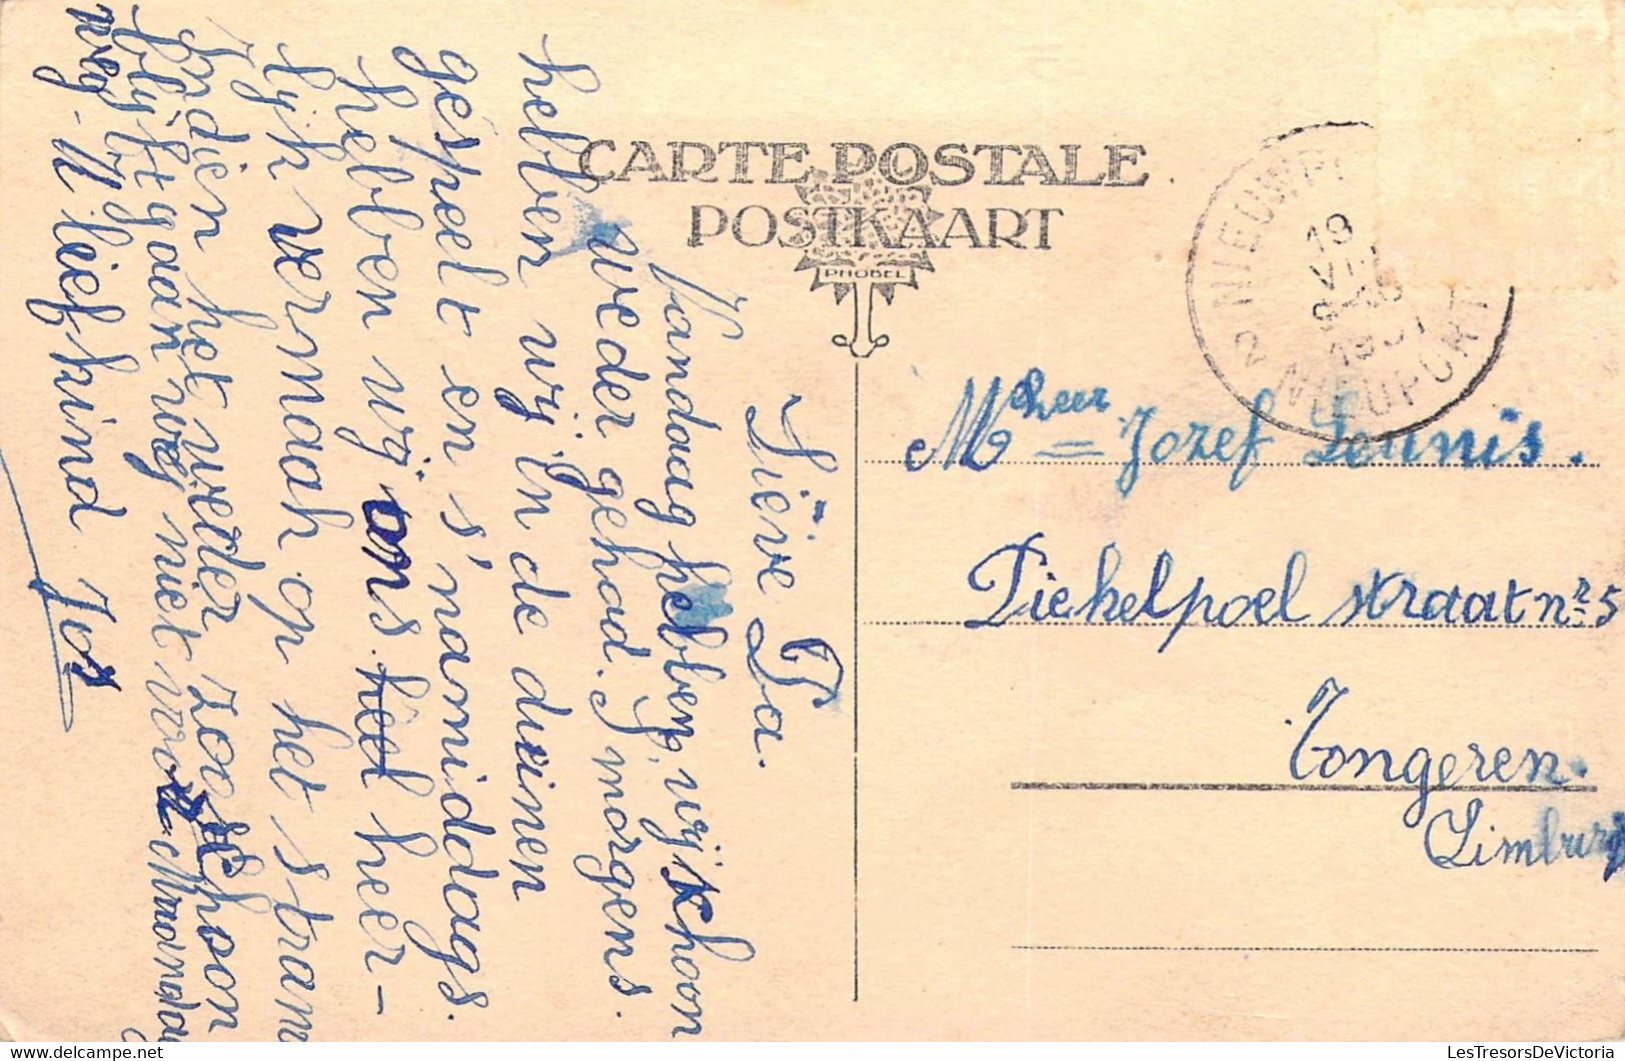 CARTE POSTALE
POSTKAART
PHOBEL
2 NIEUWPO
19
VII
1931
NIEUPORT
Mheer Jozef Leunis.
Diekelpoel straat nr 5
Tongeren.
Limburg
Lieve Pa.
Vandaag hebben wij schoon
weder gehad. 'S morgens
hebben wij in de duinen
gespeelt en s'namiddags.
hebben wij ons heel heer-
lijk vermaak op het stram
Indien het weder zoo schoon
blijft gaan wij niet Maandag
weg. U lief kind Jos
LesTresorsDeVictoria